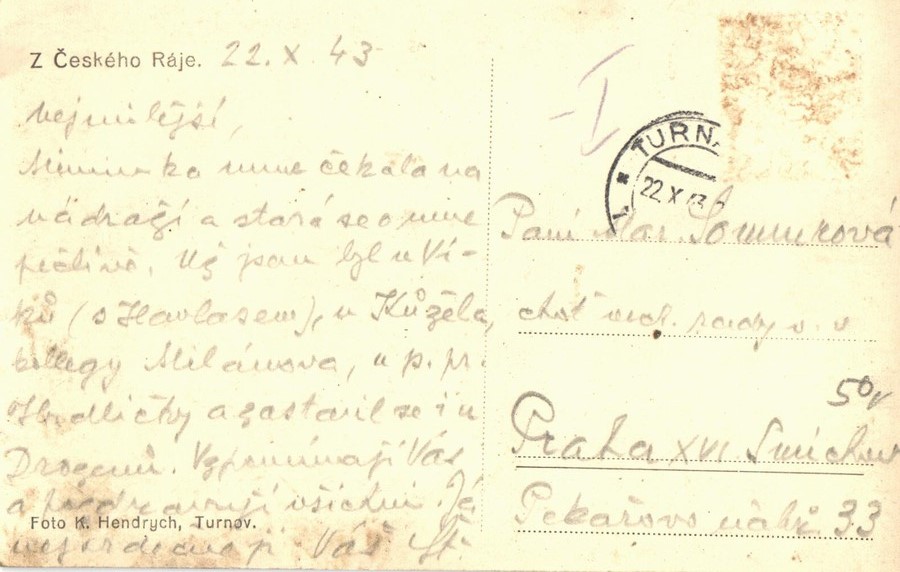 Z Českého Ráje. 22.X 43
Nejmilejší,
Miminka mne čekala na
nádraží a stará se o mne
pečlivě. Už jsem byl u Ví-
ků (s Havlasem), u Kůžela,
kollegy Milánova, u p. př.
Hrdličky a zastavil se i u
Drogenů. Vzpomínají Vás
a pozdravují všichni. Já
nejsrdečněji Váš
Foto K. Hendrych, Turnov.
I
TURN
22 X 43
Paní Mar. Sommrová
choť vrch. rady v. v
50
Praha XVI Smíchov
Pekařovo nábř 33